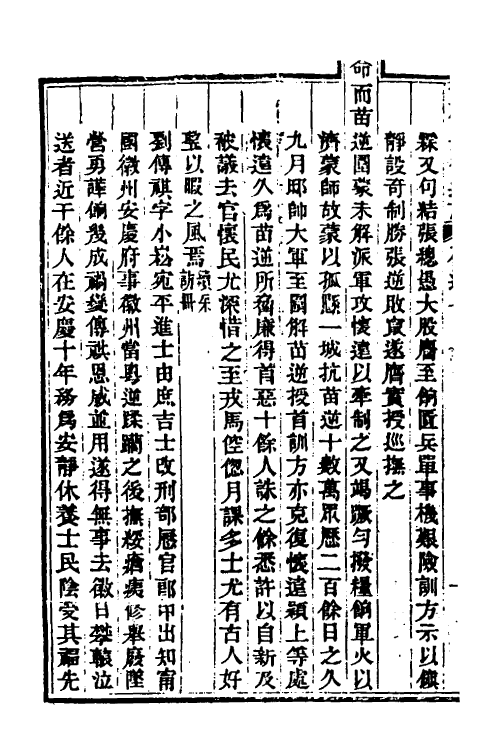 霖又句結張總愚大股麕至餉匱兵單事機艱險訓方示以鎮
靜設奇制勝張逆敗竄遂膺實授巡撫之
命而苗逆圍蒙未解派軍攻懷遠以牽制之又竭蹶勻撥糧餉軍火以
濟蒙師故蒙以孤懸一城抗苗逆十數萬眾歷二百餘日之久
九月邸帥大軍至圍解苗逆授首訓方亦克復懷遠潁上等處
懷遠久為苗逆所脅廉得首惡十餘人誅之餘悉許以自新及
被議去官懷民尤深惜之至戎馬倥偬月課多士尤有古人好
整以暇之風焉續采訪冊
劉傳祺字小崧宛平進士由庶吉士改刑部歷官郎中出知甯
國徽州安慶府事徽州當粵逆蹂躪之後撫綏瘡痍修舉廢墜
營勇譁餉幾成禍變傳祺恩威並用遂得無事去徽日攀轅泣
送者近千餘人在安慶十年務為安靜休養士民陰受其福先